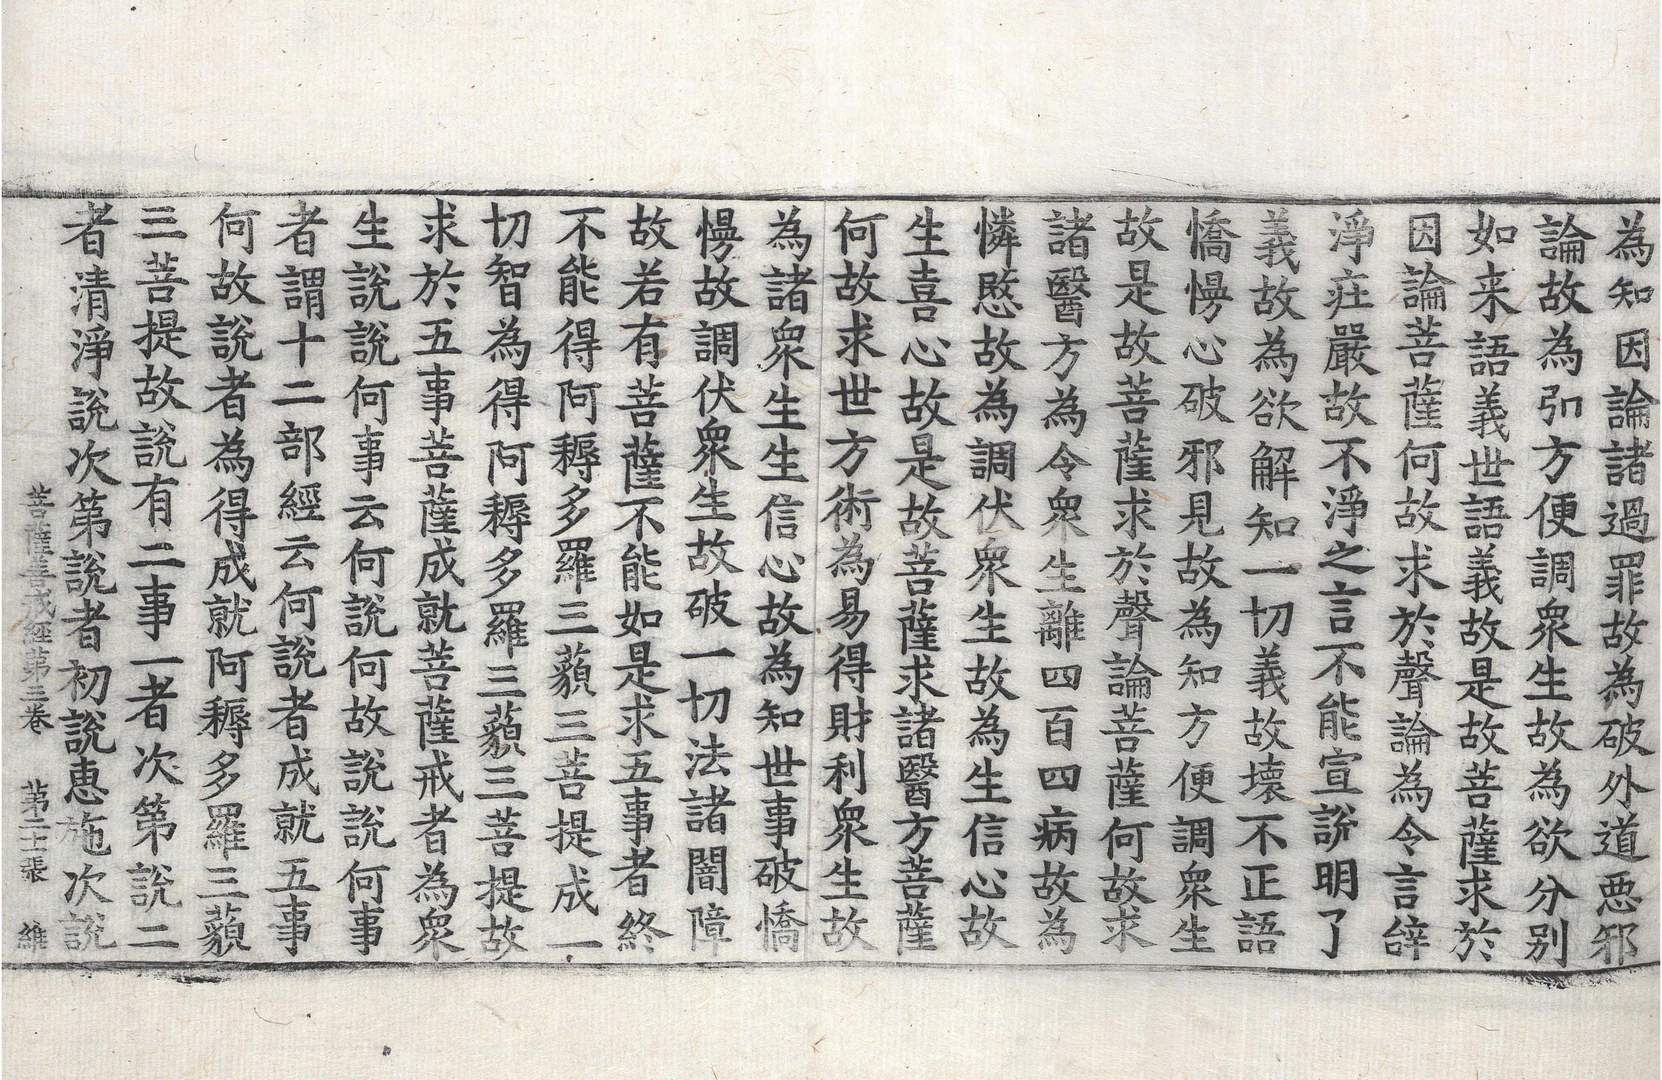 為知因論諸過罪故為破外道惡邪
論故為引方便調衆生故為欲分别
如来語義世語義故是故菩薩求於
因論菩薩何故求於聲論為令言辝
淨莊嚴故不淨之言不能宣說明了
義故為欲解知一切義故壞不正語
憍慢心破邪見故為知方便調衆生
故是故菩薩求於聲論菩薩何故求
諸醫方為令衆生離四百四病故為
憐愍故為調伏衆生故為生信心故
生喜心故是故菩薩求諸醫方菩薩
何故求世方術為易得財利衆生故
為諸衆生生信心故為知世事破憍
慢故調伏衆生故破一切法諸闇障
故若有菩薩不能如是求五事者終
不能得阿耨多羅三藐三菩提成一
切智為得阿耨多羅三藐三菩提故
求於五事菩薩成就菩薩戒者為衆
生說說何事云何說何故說說何事
者謂十二部經云何說者成就五事
何故說者為得成就阿耨多羅三藐
三菩提故說有二事一者次第說二
者清淨說次第說者初說惠施次說
菩薩善戒經第三卷 第二十張 維